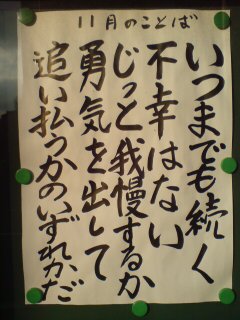 11月のことば
いつまでも続く
不幸はない
じっと我慢するか
勇気を出して
追い払うかの、いずれかだ